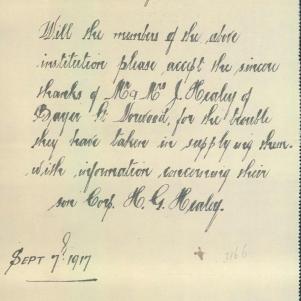 Will the members of the above
institution please accept the sincere
thanks of Mr & Mrs J. Healey of
Bayer St Norwood, for the trouble
they have taken in supplying them.
with information concerning their
son Corp. H. G. Healey.
Sept 7th 1917
3166